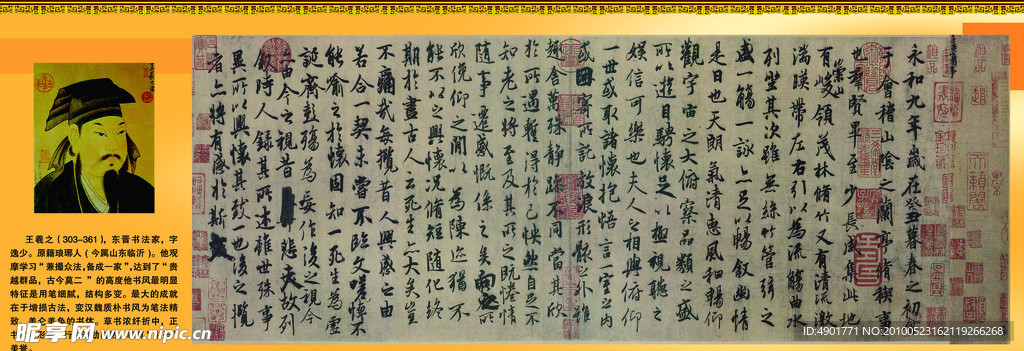 王羲之（303–361），东晋书法家，字
逸少。原籍琅琊人（今属山东临沂）。他观
摩学习“兼撮众法，备成一家”，达到了“贵
越群品，古今莫二 ”的高度他书风最明显
特征是用笔细腻，结构多变。最大的成就
在于增损古法，变汉魏质朴书风为笔法精
致、美仑美奂的书体。草书浓纤折中，正
美誉。
永和九年歲在癸丑暮春之初會
于會稽山陰之蘭亭脩稧事
也羣賢畢至少長咸集此地
有崇山峻領茂林脩竹又有清流激
湍暎帶左右引以為流觴曲水
列坐其次雖無絲竹管弦之
盛一觴一詠亦足以暢敘幽情
是日也天朗氣清惠風和暢仰
觀宇宙之大俯察品類之盛
所以遊目騁懷足以極視聽之
娛信可樂也夫人之相與俯仰
一世或取諸懷抱悟言一室之內
或因寄所託放浪形骸之外雖
趣舍萬殊靜躁不同當其欣
於所遇蹔得於己怏然自足不
知老之將至及其所之既惓情
隨事遷感慨係之矣向之所
欣俛仰之閒以為陳迹猶不
能不以之興懷況脩短隨化終
期於盡古人云死生亦大矣豈
不痛哉每攬昔人興感之由
若合一契未嘗不臨文嗟悼不
能喻之於懷固知一死生為虛
誕齊彭殤為妄作後之視今
亦由今之視昔悲夫故列
敘時人錄其所述雖世殊事
異所以興懷其致一也後之攬
者亦將有感於斯文
昵享网 www.nipic.cn
ID:4901771 NO:20100523162119266268